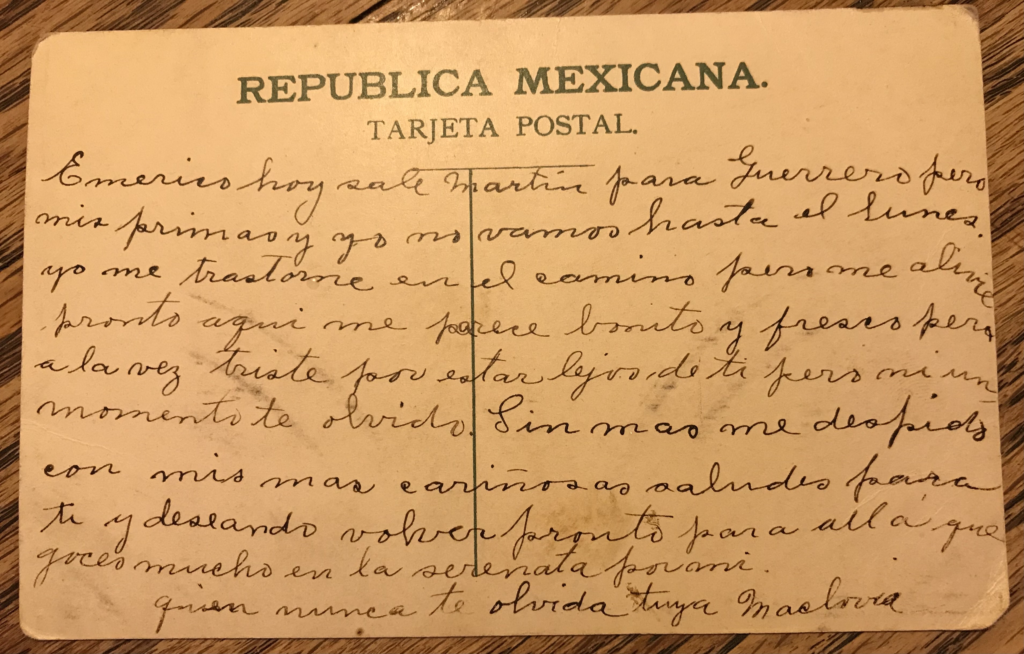 REPUBLICA MEXICANA.
TARJETA POSTAL.
Emerico hoy sale Martin para Guerrero pero
mis primas y yo no vamos hasta el lunes.
yo me trastorne en el camino pero me alivie
pronto aqui me parece bonito y fresco pero
a la vez triste por estar lejos de ti pero ni un
momento te olvido. Sin mas me despido
con mis mas cariñosas saludes para
ti y deseando volver pronto para allá que
goces mucho en la serenata por mi.
quien nunca te olvida tuya Maclovia